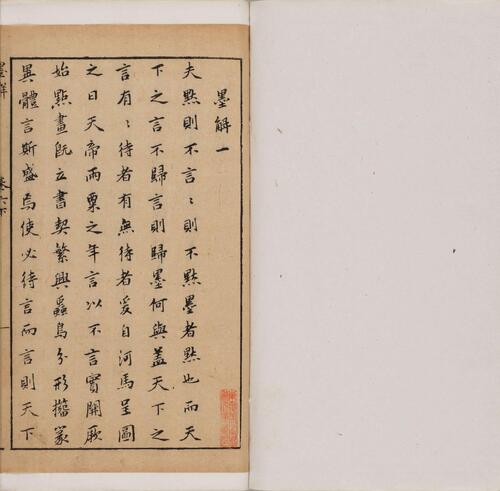 墨解一
夫黙則不言〻則不黙墨者黙也而天
下之言不歸言則歸墨何與蓋天下之
言有〻待者有無待者爰自河馬呈圖
之日天帝雨粟之年言以不言實開厥
始點畫既立書契繁興蟲鳥分形籀篆
異體言斯盛焉使必待言而言則天下
墨解
卷六下
一